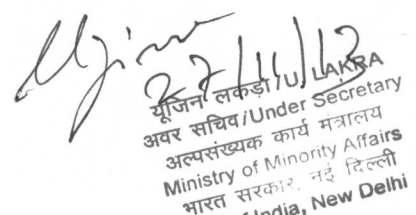 27/11/13
यूजिन लकड़ा/U. LAKRA
अवर सचिव/Under Secretary
अल्पसंख्यक कार्य मंत्रालय
Ministry of Minority Affairs
भारत सरकार, नई दिल्ली
of India, New Delhi